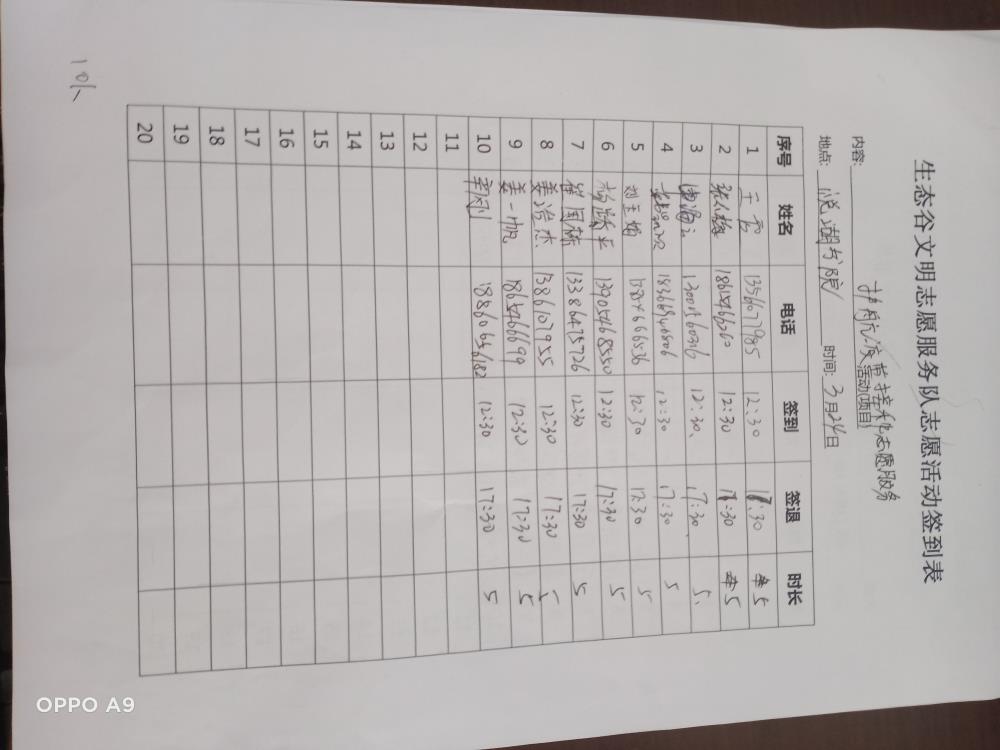 生态谷文明志愿服务队志愿活动签到表
疫苗接种志愿服务
内容: 活动(项目)
地点: 悦湖书院 时间: 3月24日
序号 姓名 电话 签到 签退 时长
1 王霞 13561077985 12:30 17:30 5
2 18615466260 12:30 17:30 5
3 13001560316 12:30、 17:30、 5、
4 18366946606 12:30 17:30 5
5 刘玉娟 13854666536 12:30 17:30 5
6 13905468550 12:30 17:30 5
7 崔国栋 13386475726 12:30 17:30 5
8 姜治杰 1386107955 12:30 17:30 5
9 姜一帆 18654666699 12:30 17:30 5
10 18860656182 12:30 17:30 5
11
12
13
14
15
16
17
18
19
20
1队
OPPO A9